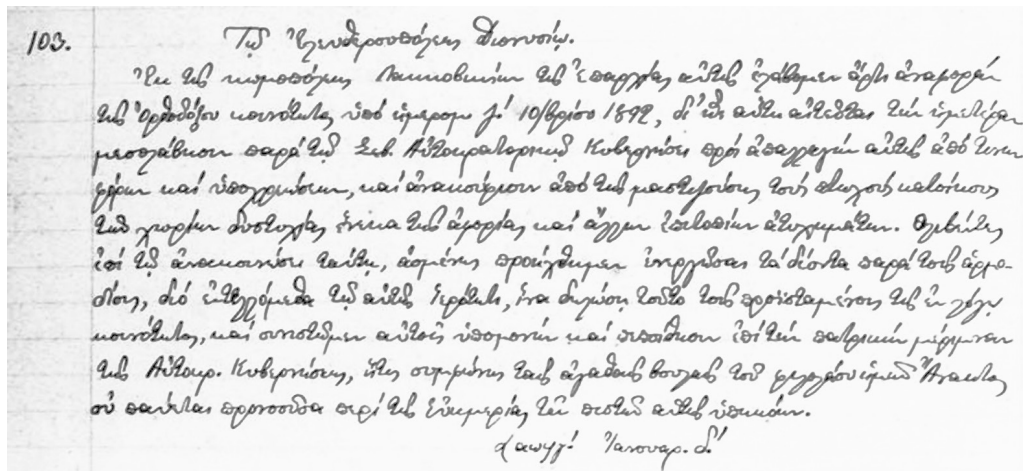 103.
Τῷ Ἐλευθερουπόλεως Διονυσίῳ.
Ἐκ τῆς κωμοπόλεως Λακκοβικίων τῆς ἐπαρχίας αὐτῆς ἐλάβομεν ἄρτι ἀναφορὰν
τῆς Ὀρθοδόξου κοινότητος ὑπὸ ἡμερομ. γ΄ 10/βρίου 1892, δι' ἧς αὕτη αἰτεῖται τὴν ἡμετέραν
μεσολάβησιν παρὰ τῇ Σεβ. Αὐτοκρατορικῇ Κυβερνήσει πρὸς ἀπαλλαγὴν αὐτῆς ἀπό τινων
φόρων καὶ ὑποχρεώσεων, καὶ ἀνακούφισιν ἀπὸ τῆς μαστιζούσης τοὺς πτωχοὺς κατοίκους
τῶν χωρίων δυστυχίας ἕνεκα τῆς ἀφορίας καὶ ἄλλων ἐπιτοπίων ἀτυχημάτων. Θλιβέντες
ἐπὶ τῇ ἀνακοινώσει ταύτῃ, ἀσμένως προήχθημεν ἐνεργῆσαι τὰ δέοντα παρὰ τοῖς ἁρμο-
δίοις, διὸ ἐντελλόμεθα τῇ αὐτῆς Ἱερότητι, ἵνα δηλώσῃ τοῦτο τοῖς προϊσταμένοις τῆς ἐν λόγῳ
κοινότητος, καὶ συνιστῶμεν αὐτοῖς ὑπομονὴν καὶ πεποίθησιν ἐπὶ τὴν πατρικὴν μέριμναν
τῆς Αὐτοκρ. Κυβερνήσεως, ἥτις συμφώνως ταῖς ἀγαθαῖς βουλαῖς τοῦ φιλολάου ἡμῶν Ἄνακτος
οὐ παύεται προνοοῦσα περὶ τῆς εὐημερίας τῶν πιστῶν αὐτῆς ὑπηκόων.
͵αωϟγ΄ Ἰανουαρ. δ΄